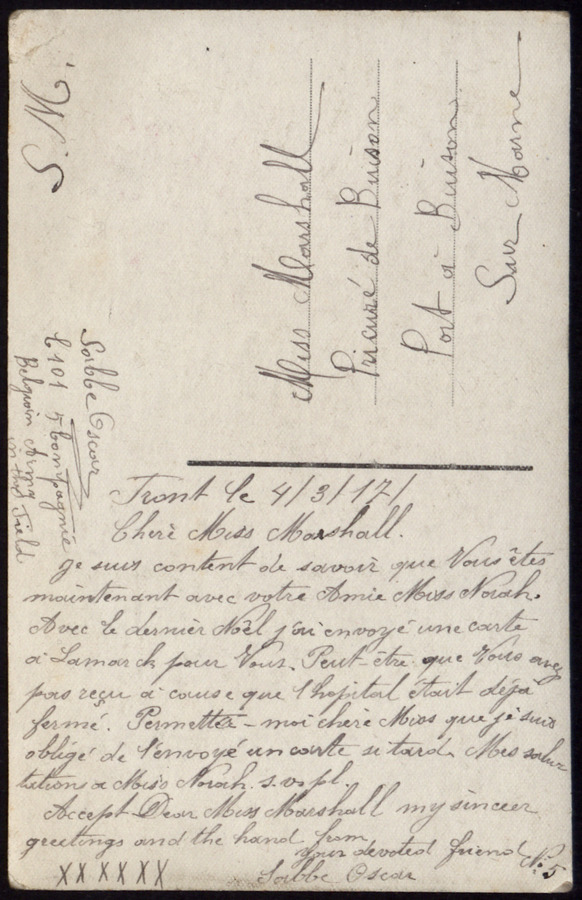 S. M.
Miss Marshall
Prieuré de Binson
Port à Binson
Sur Marne
Sabbe Oscar
C 101 5 Compagnie
Belgian Army
in the Field
Front le 4/3/17/
Cherè Miss Marshall.
Je suis content de savoir que Vous êtes
maintenant avec votre Amie Miss Norah.
Avec le dernièr Noël j'ai envoyé une carte
à Lamarck pour Vous. Peut-être que Vous avez
pas reçu à cause que l'hopital était déjà
fermé. Permetter-moi cherè Miss que je suis
obligé de l'envoyé un carte si tard. Mes salu-
tations a Miss Norah. s. v. pl.
Accept Dear Miss Marshall my sinceer
greetings and the hand from
your devoted friend
Sabbe Oscar
XXXXXX
N: 5